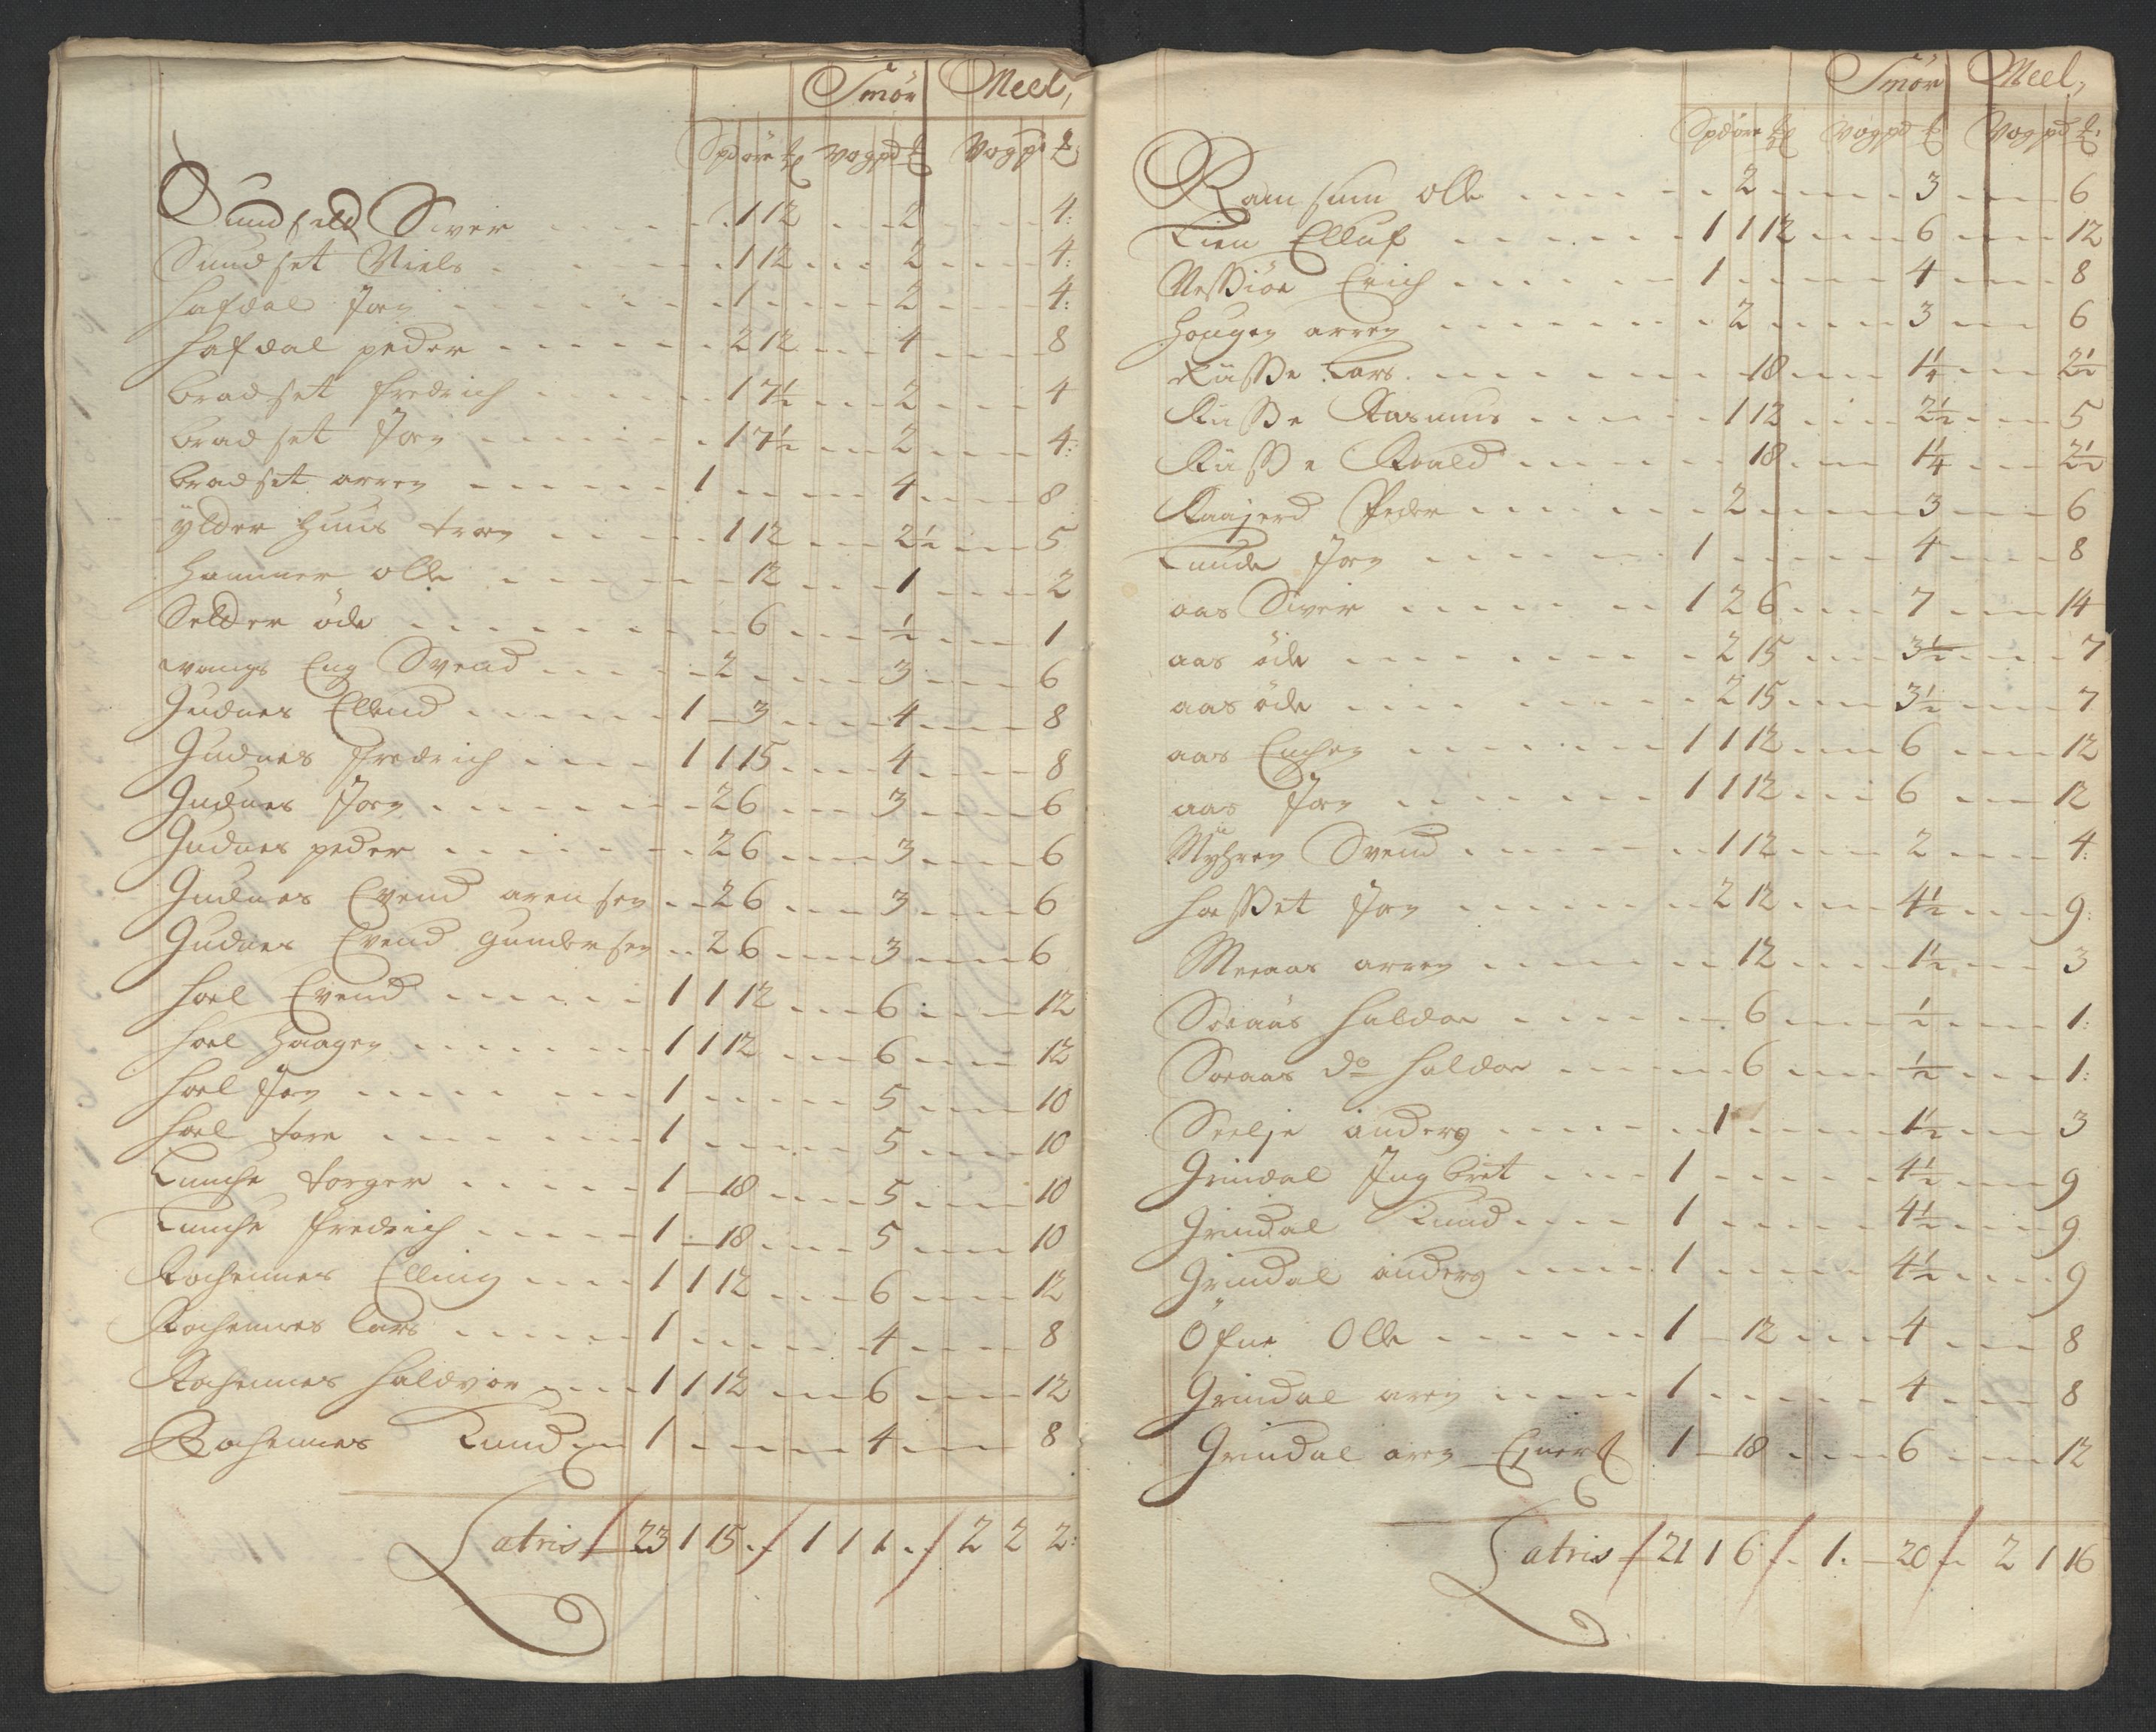 Smör Meel,
Spd öre Vog pd Vog pd
Sundset Siver 1 12 2 4:
Sundset Niels 1 12 2 4:
Hafdal Jon 1 2 4:
Hafdal peder 2 12 4 8
Bradset fredrich 1 7½ 2 4
Bradset Jon 1 7½ 2 4:
Bradset arren 1 4 8
ÿlder Huus tron 1 12 2½ 5
Hammer olle 12 1 2
Selder öde 6 ½ 1
vangs Eng Svend 2 3 6
Gudnes Ellend 1 - 3 4 8
Gudnes fredrich 1 1 15 4 8
Gudnes Jon 2 6 3 6
Gudnes peder 2 6 3 6
Gudnes Evend arensen 2 6 3 6
Gudnes Evend gundersen 2 6 3 6
Hoel Evend 1 1 12 6 12
Hoel Haagen 1 1 12 6 12
Hoel Jon 1 5 10
Hoel tore 1 5 10
Lunche torger 1 - 18 5 10
Lunche fredrich 1 - 18 5 10
Rochennes Elling 1 1 12 6 12
Rochennes Lars 1 4 8
Rochennes Haldvor 1 1 12 6 12
Rochennes Knud 1 4 8
Latris 23 1 15 / 1 1 1 / 2 2 2:
Smör Meel,
Spd öre Vog pd Vog pd
Ramsum olle 2 3 6
Lien Elluf 1 1 12 6 12
Nessiöe Erich 1 4 8
Hougen arren 2 3 6
Russe Lars 18 1¼ 2½
Russe Rasmus 1 12 2½ 5
Russe Roald 18 1¼ 2½
Raajerd Peder 2 3 6
Lunde Jon 1 4 8
aas Siver 1 2 6 7 14
aas öde 2 15 3½ 7
aas öde 2 15 3½ 7
aas Enchen 1 1 12 6 12
aas Jon 1 1 12 6 12
Myhren Svend 1 12 2 4:
Hosset Jon 2 12 4½ 9:
Meraas arren 12 1½ 3
Soraas Haldor 6 ½ 1:
Soraas do Haldor 6 ½ 1:
Selje anders 1 1½ 3
Grindal Ingbret 1 4½ 9
Grindal Knud 1 4½ 9
Grindal anders 1 4½ 9
Öfne Olle 1 - 12 4 8
Grindal aren 1 4 8
Grindal aren 1 - 18 6 12
Latris 21 1 6 / 1 - 20 / 2 1 16